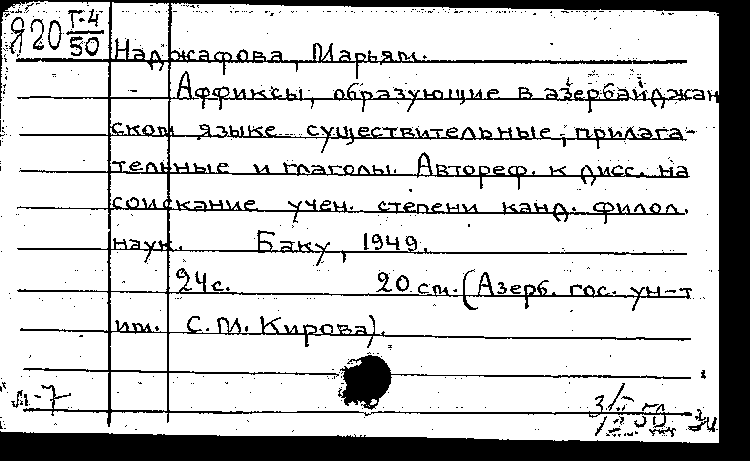 Я20 Г-4
50
Наджафова, Марьям.
Аффиксы, образующие в азербайджан
ском языке существительные, прилага-
тельные и глаголы. Автореф. к дисс. на
соискание учен. степени канд. филол.
наук. Баку, 1949.
24с. 20 см. (Азерб. гос. ун-т
им. С.М. Кирова).
м-7